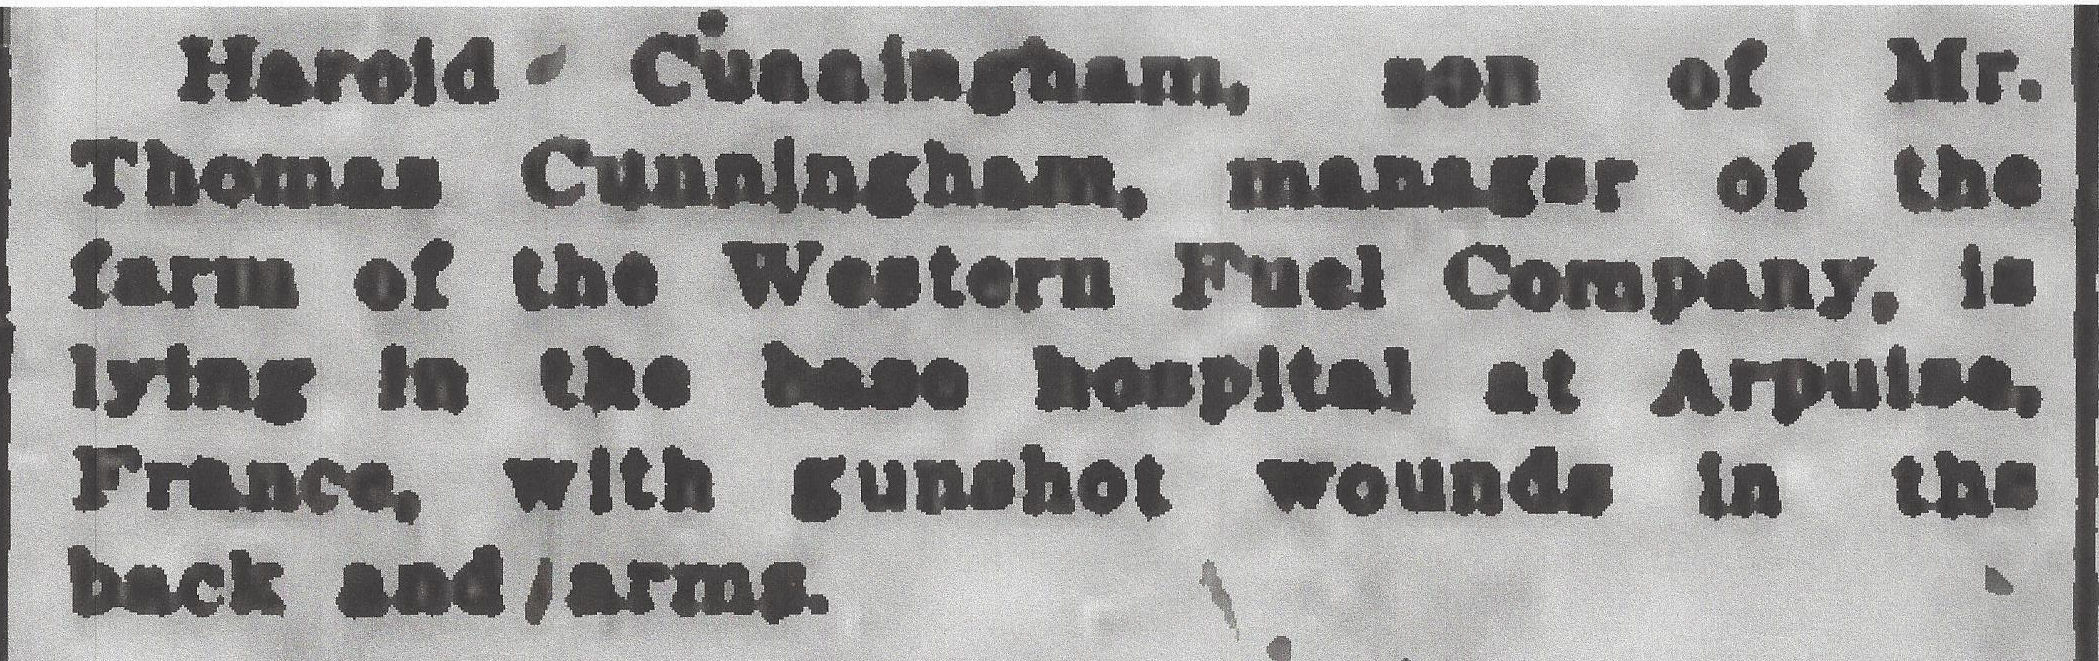 Harold Cunningham, son of Mr.
Thomas Cunningham, manager of the
farm of the Western Fuel Company, is
lying in the base hospital at Arpuise,
France, with gunshot wounds in the
back and arms.